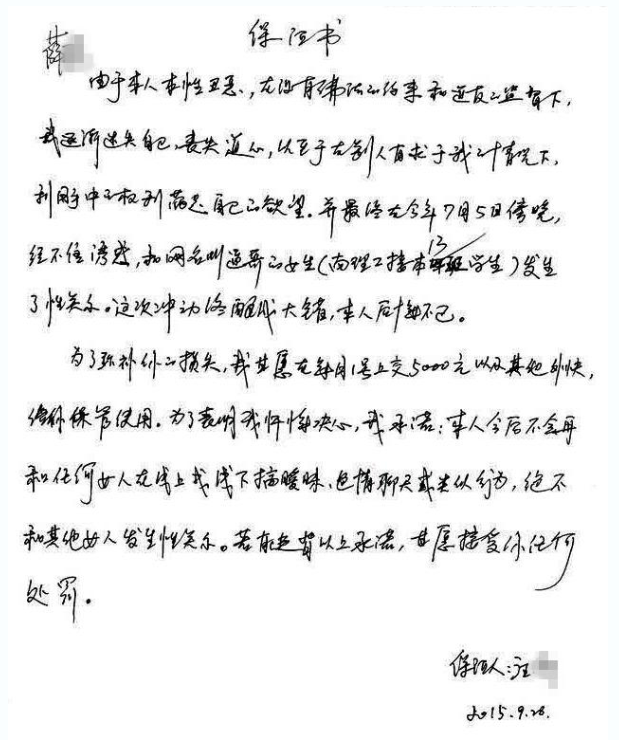 保证书
薛
由于本人本性丑恶,在没有佛法的约束和道友的监督下,
我逐渐迷失自己,丧失道心,以至于在别人有求于我的情况下,
利用手中的权利满足自己的欲望。并最终在今年7月5日傍晚,
经不住诱惑,和网名叫逼哥的女生(南理工接本13学生)发生
了性关系。这次冲动终酿成大错,本人后悔不已。
为了弥补你的损失,我甘愿在每月1号上交5000元以及其他外快,
给你保管使用。为了表明我忏悔决心,我承诺:本人今后不会再
和任何女人在线上或线下搞暧昧、色情聊天或类似行为,绝不
和其他女人发生性关系。若有违背以上承诺,甘愿接受你任何
处罚。
保证人:汪
2015.9.28.